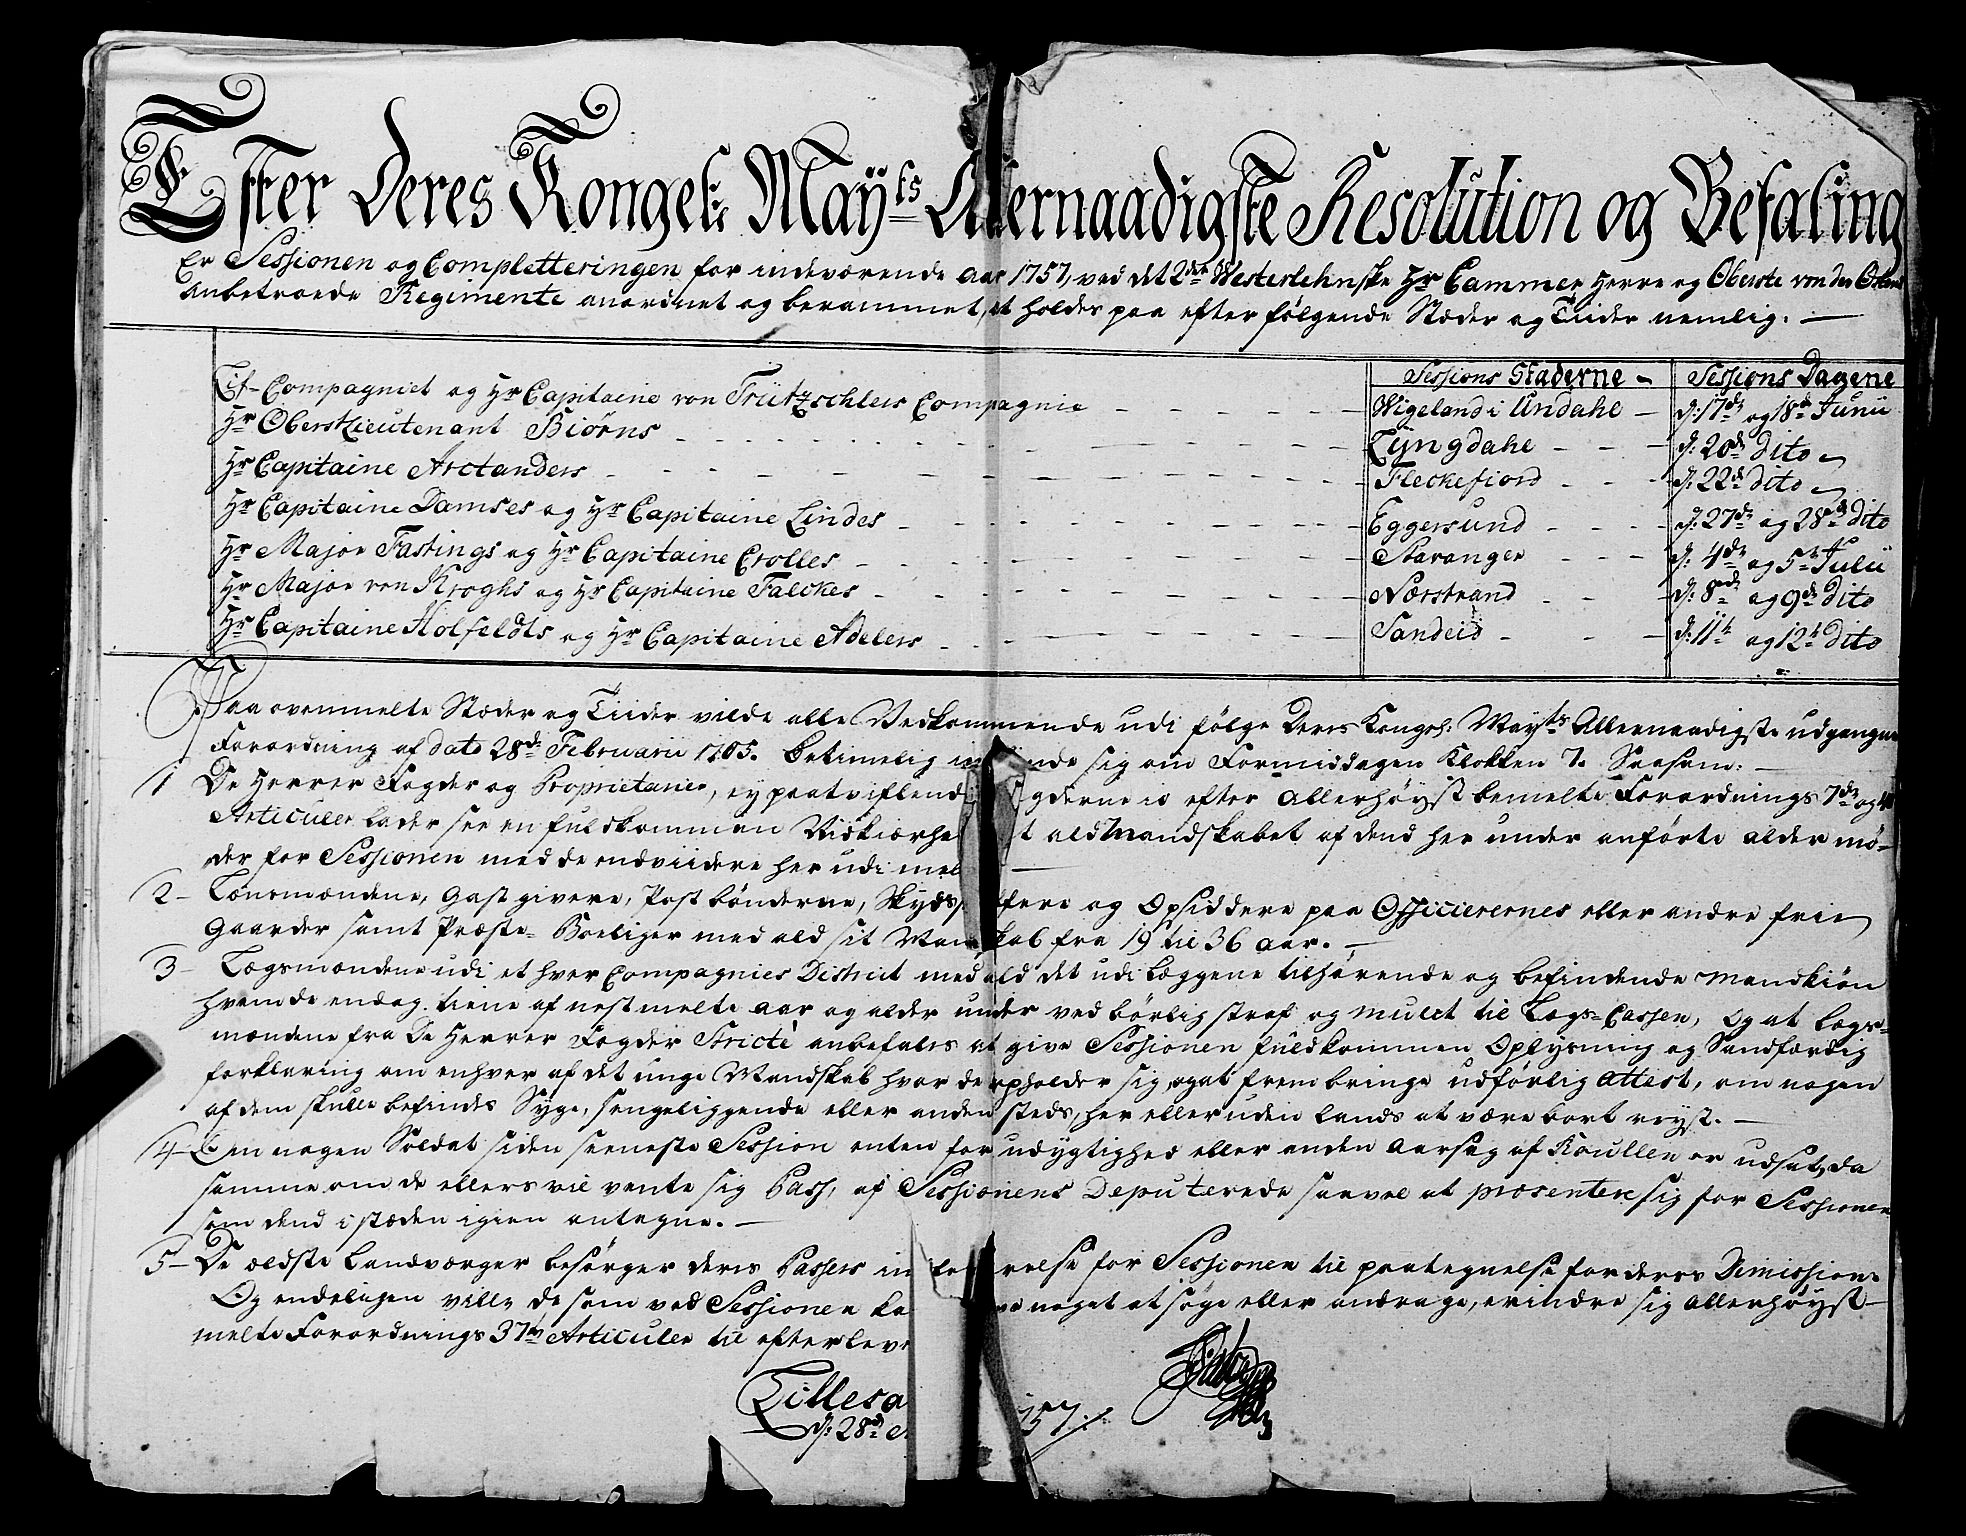 Efter Deres Kongel: May:ts Allernaadigste Resolution og Befaling
Er Sessionen og Completteringen for indeværende Aar 1757, ved det 2den Westerlehnske Hr Cammer Herre og Oberste von der Osten
anbetroede Regimente anordnet og berammet, at holdes paa efterfølgende Stæder og Tiider nemlig. —
Sessions Stæderne — Sessions Dagene
Lif-Compagniet og Hr Capitaine von Trützschlers Compagnie — Wigeland i Undahl — d: 17de og 18de Junii
Hr Oberstlieutenant Biørns — Lÿngdahl — d: 20de dito
Hr Capitaine Arctanders — Fleckefiord — d: 22de dito
Hr Capitaine Damses og Hr Capitaine Lindes — Eggersund — d: 27de og 28de dito
Hr Major Fastings og Hr Capitaine Crolles — Stavanger — d: 4de og 5te Julii
Hr Major von Kroghs og Hr Capitaine Falckes — Nærstrand — d: 8de og 9de dito
Hr Capitaine Holfeldts og Hr Capitaine Adelers — Sandeid — d: 11te og 12te dito
Paa ovenmelte Stæder og Tiider vilde alle Vedkommende udi følge Deres Kongel: May:ts Allernaadigste udgangne
Forordning af dato 28de Februarii 1705. betimelig indfinde sig om Formiddagen Klokken 7. Saasom: —
1 De Herrer Fogder og Proprietarier, ey paatviflende Fogderne jo efter Allerhøyst bemelte Forordnings 7de og
Articuler lader see en fuldkommen Vidkiørhed at ald Mandskabet af dend her under anførte alder mø-
der for Sessionen med de endviidere her udi mel —
2 - Lensmændene, Gastgivere, Postbønderne, Skyds og Opsiddere paa Officierernes eller andre frie
Gaarder samt Præste-Boeliger med ald sit Mandskab fra 19 til 36 aar. —
3 - Lægsmændene udi et hver Compagnies District med ald det udi Læggene tilhørende og befindende Mandkiøn
hvem de endog tiene af nestmelte aar og alder under ved børlig straf og mulct til Lægs-Cassen, Og at Lægs-
mændene fra De Herrer Fogder Stricté anbefales at give Sessionen fuldkommen Oplysning og Sandfærdig
forklaring om enhver af det unge Mandskab hvor de opholder sig, og at frembringe udførlig Attest, om nogen
af dem skulle befindes Syge, sengeliggende eller andensteds, her eller uden lands at være bort reyst. —
4 - Om nogen Soldat siden seeneste Session enten for udygtighed eller anden aarsag af Roullen er udsat, da
samme om de ellers vil vente sig Pass, af Sessionens Deputerede saavel at præsentere sig for Sessionen
som dend i stæden igien antagne. —
5 - De ældste Landværger besørger deris Passers for Sessionen til paategnelse for deres Dimission.
Og endeligen ville de som ved Sessionen noget at søge eller andrage, erindre sig Allerhøyst-
melte Forordnings 37te Articuler til efterleve
Lillesa
d: 28de 757 ./.